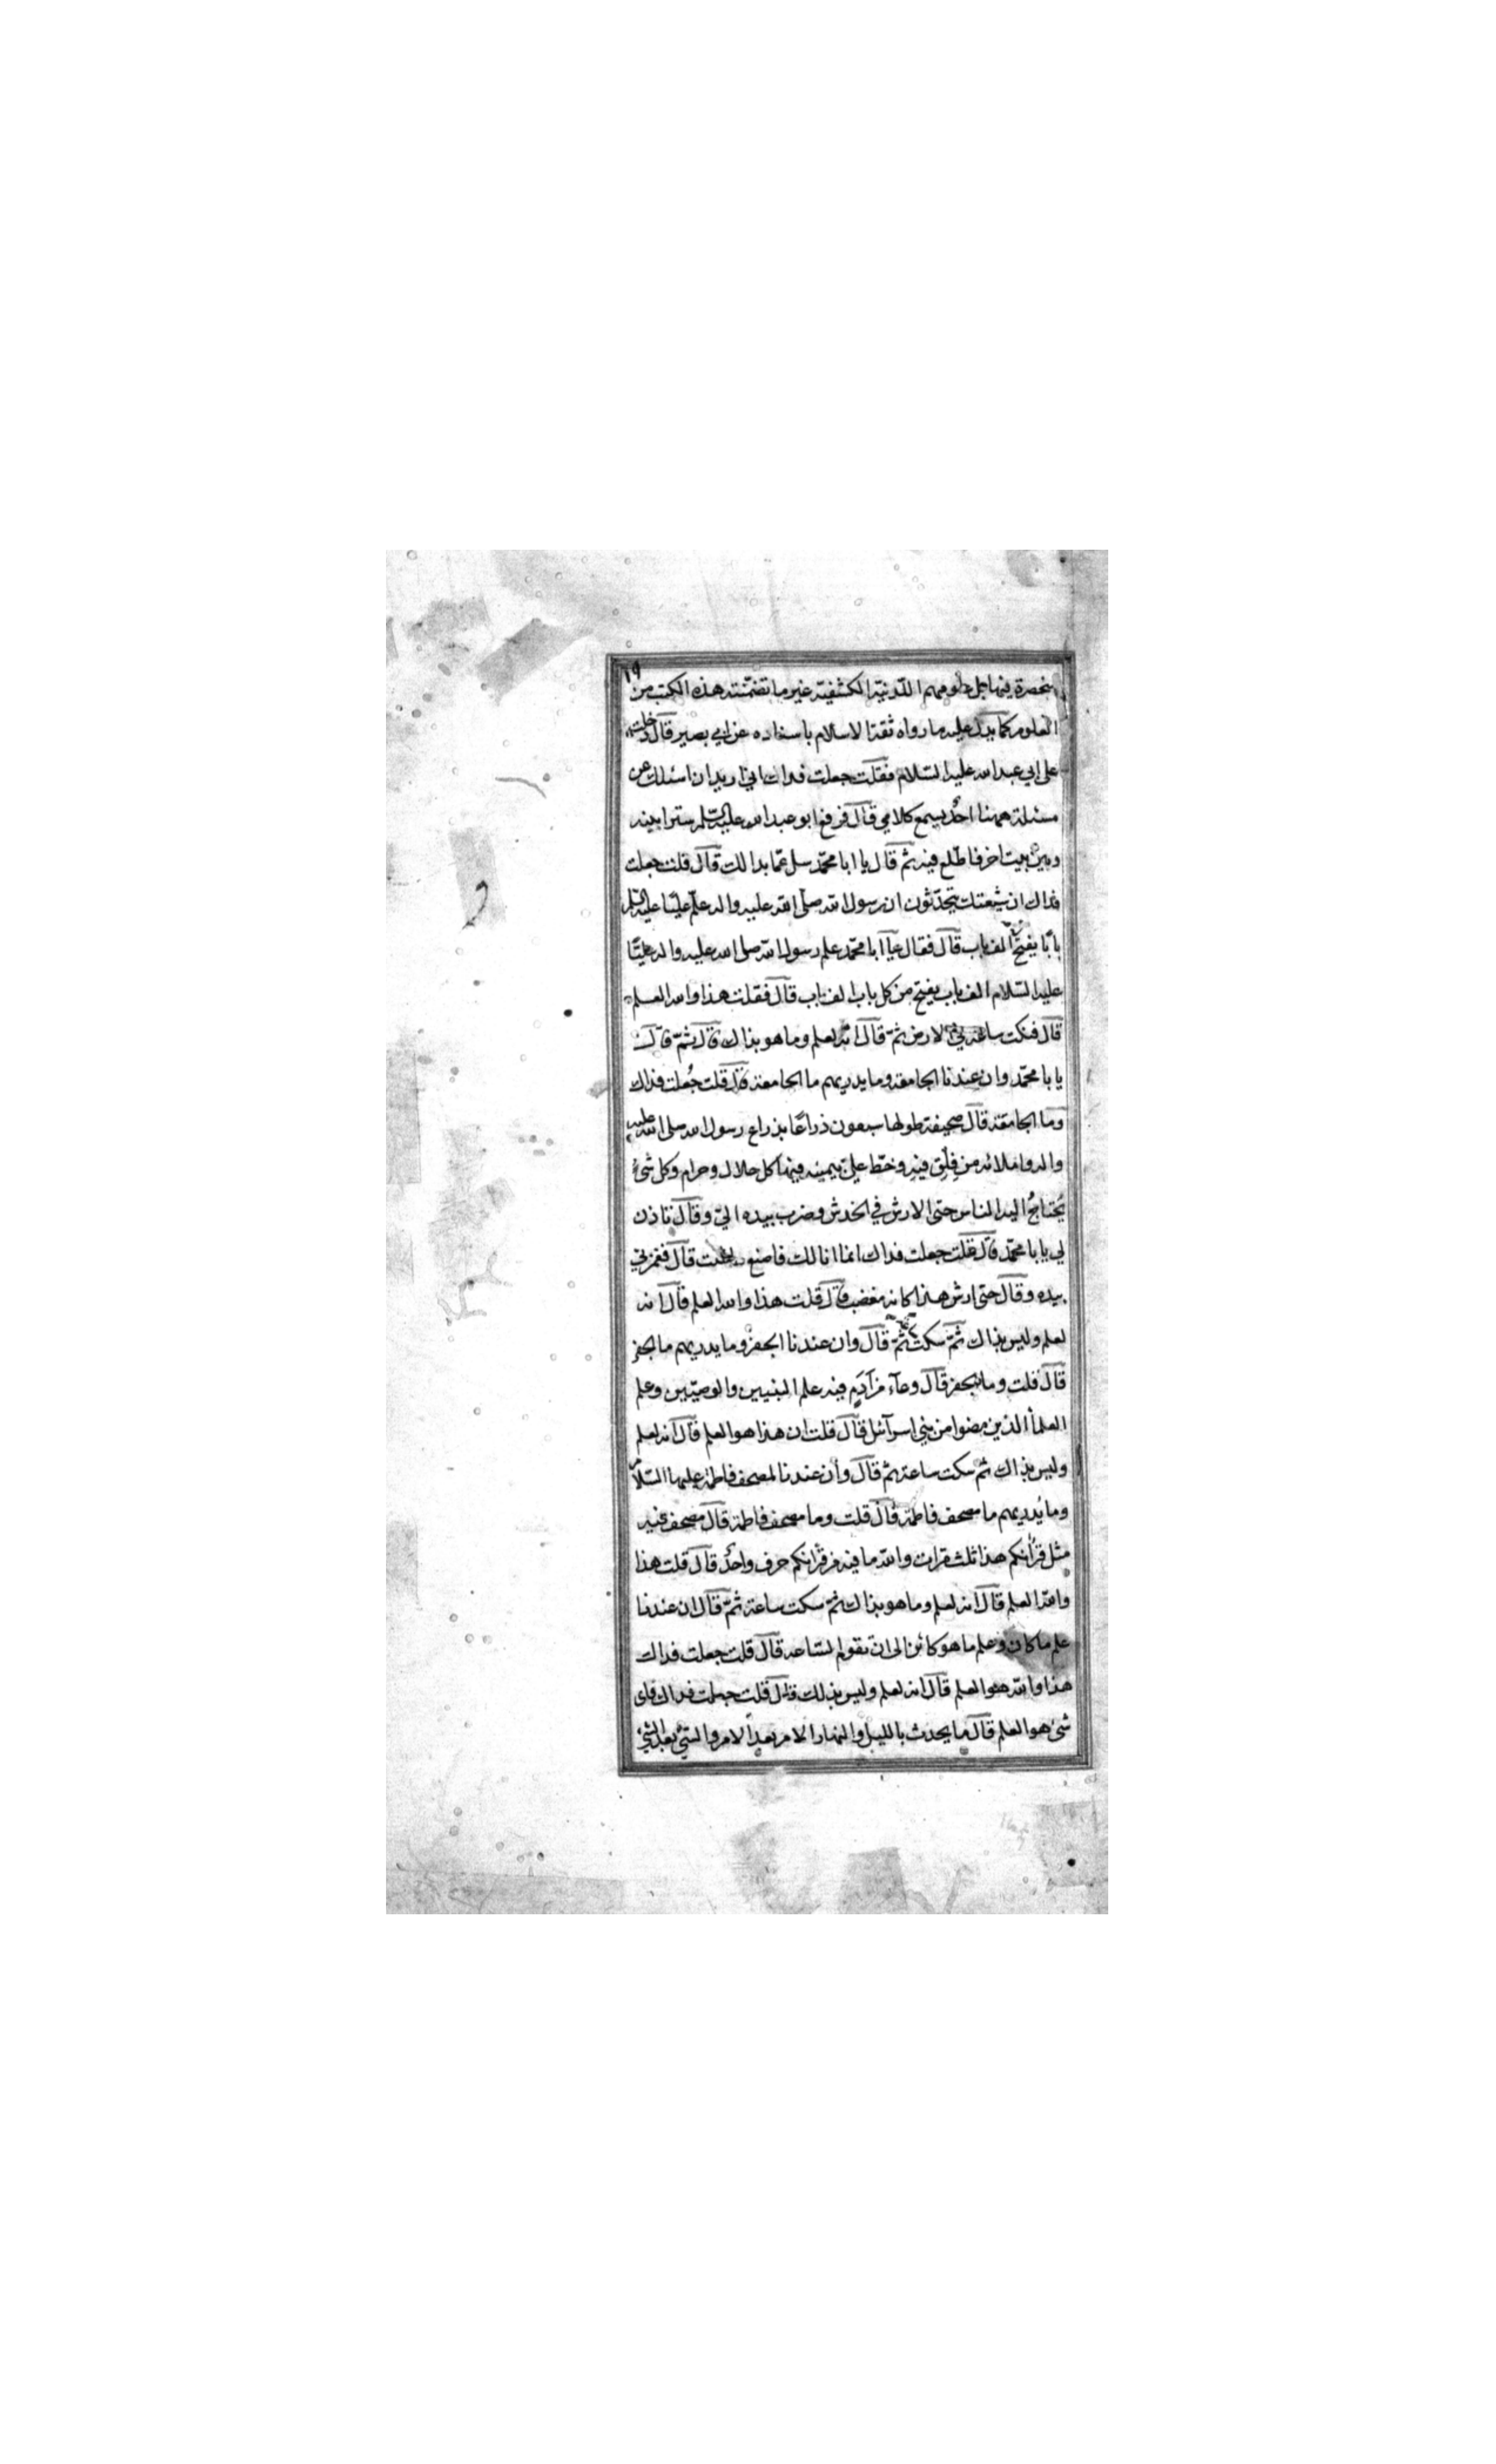 ١٩
منحصرة فيها جل علومهم اللدنية الكشفية غير ما تضمنته هذه الكتب من
العلوم كما يدل عليه ما رواه ثقة الاسلام باسناده عن ابي بصير قال دخلت
على ابي عبد الله عليه السلام فقلت جعلت فداك اني اريد ان اسئلك عن
مسئلة ههنا احد يسمع كلامي قال فرفع ابو عبد الله عليه السلم سترا بينه
وبين بيت اخر فاطلع فيه ثم قال يا ابا محمد سل عما بدا لك قال قلت جعلت
فداك ان شيعتك يتحدثون ان رسول الله صلى الله عليه واله علم عليا عليه السلم
بابا يفتح الف باب قال فقال يا ابا محمد علم رسول الله صلى الله عليه واله عليا
عليه السلام الف باب يفتح من كل باب الف باب قال فقلت هذا والله العلم
قال فنكت ساعة في الارض ثم قال انه لعلم وما هو بذاك قال ثم قال
يا با محمد وان عندنا الجامعة وما يدريهم ما الجامعة قال قلت جُعلت فداك
وما الجامعة قال صحيفة طولها سبعون ذراعًا بذراع رسول الله صلى الله عليه
واله واملائه من فِلْقِ فيهِ وخط علي بيمينه فيها كل حلال وحرام وكل شئ
يُحتاجُ اليه الناس حتى الارش في الخدش وضرب بيده اليّ وقال تاذن
لي يا با محمد قال فقلت جعلت فداك انما انا لك فاصنع ما شئت قال فغمزني
بيده وقال حتى ارش هذا كانه مغضب قال قلت هذا والله العلم قال انه
لعلم وليس بذاك ثم سكت ثم قال وان عندنا الجفر وما يدريهم ما الجفر
قال قلت وما الجفر قال وعآء من آدَمٍ فيه علم النبيين والوصيّين وعلم
العلمأ الذين مضوا من بني اسرآئيل قال قلت ان هذا هو العلم قال انه لعلم
وليس بذاك ثم سكت ساعة ثم قال وأن عندنا لمصحف فاطمة عليها السلام
وما يُدريهم ما مصحف فاطمة قال قلت وما مصحف فاطمة قال مصحف فيه
مثل قرأنكم هذا ثلث مرات والله ما فيه من قرأنكم حرف واحد قال قلت هذا
والله العلم قال انه لعلم وما هو بذاك ثم سكت ساعة ثم قال ان عندنا
علم ما كان وعلم ما هو كائن الى ان تقوم الساعة قال قلت جعلت فداك
هذا والله هو العلم قال انه لعلم وليس بذلك قال قلت جعلت فداك فاى
شئ هو العلم قال ما يحدث بالليل والنهار الامر بعد الامر والشئ بعد الشئ